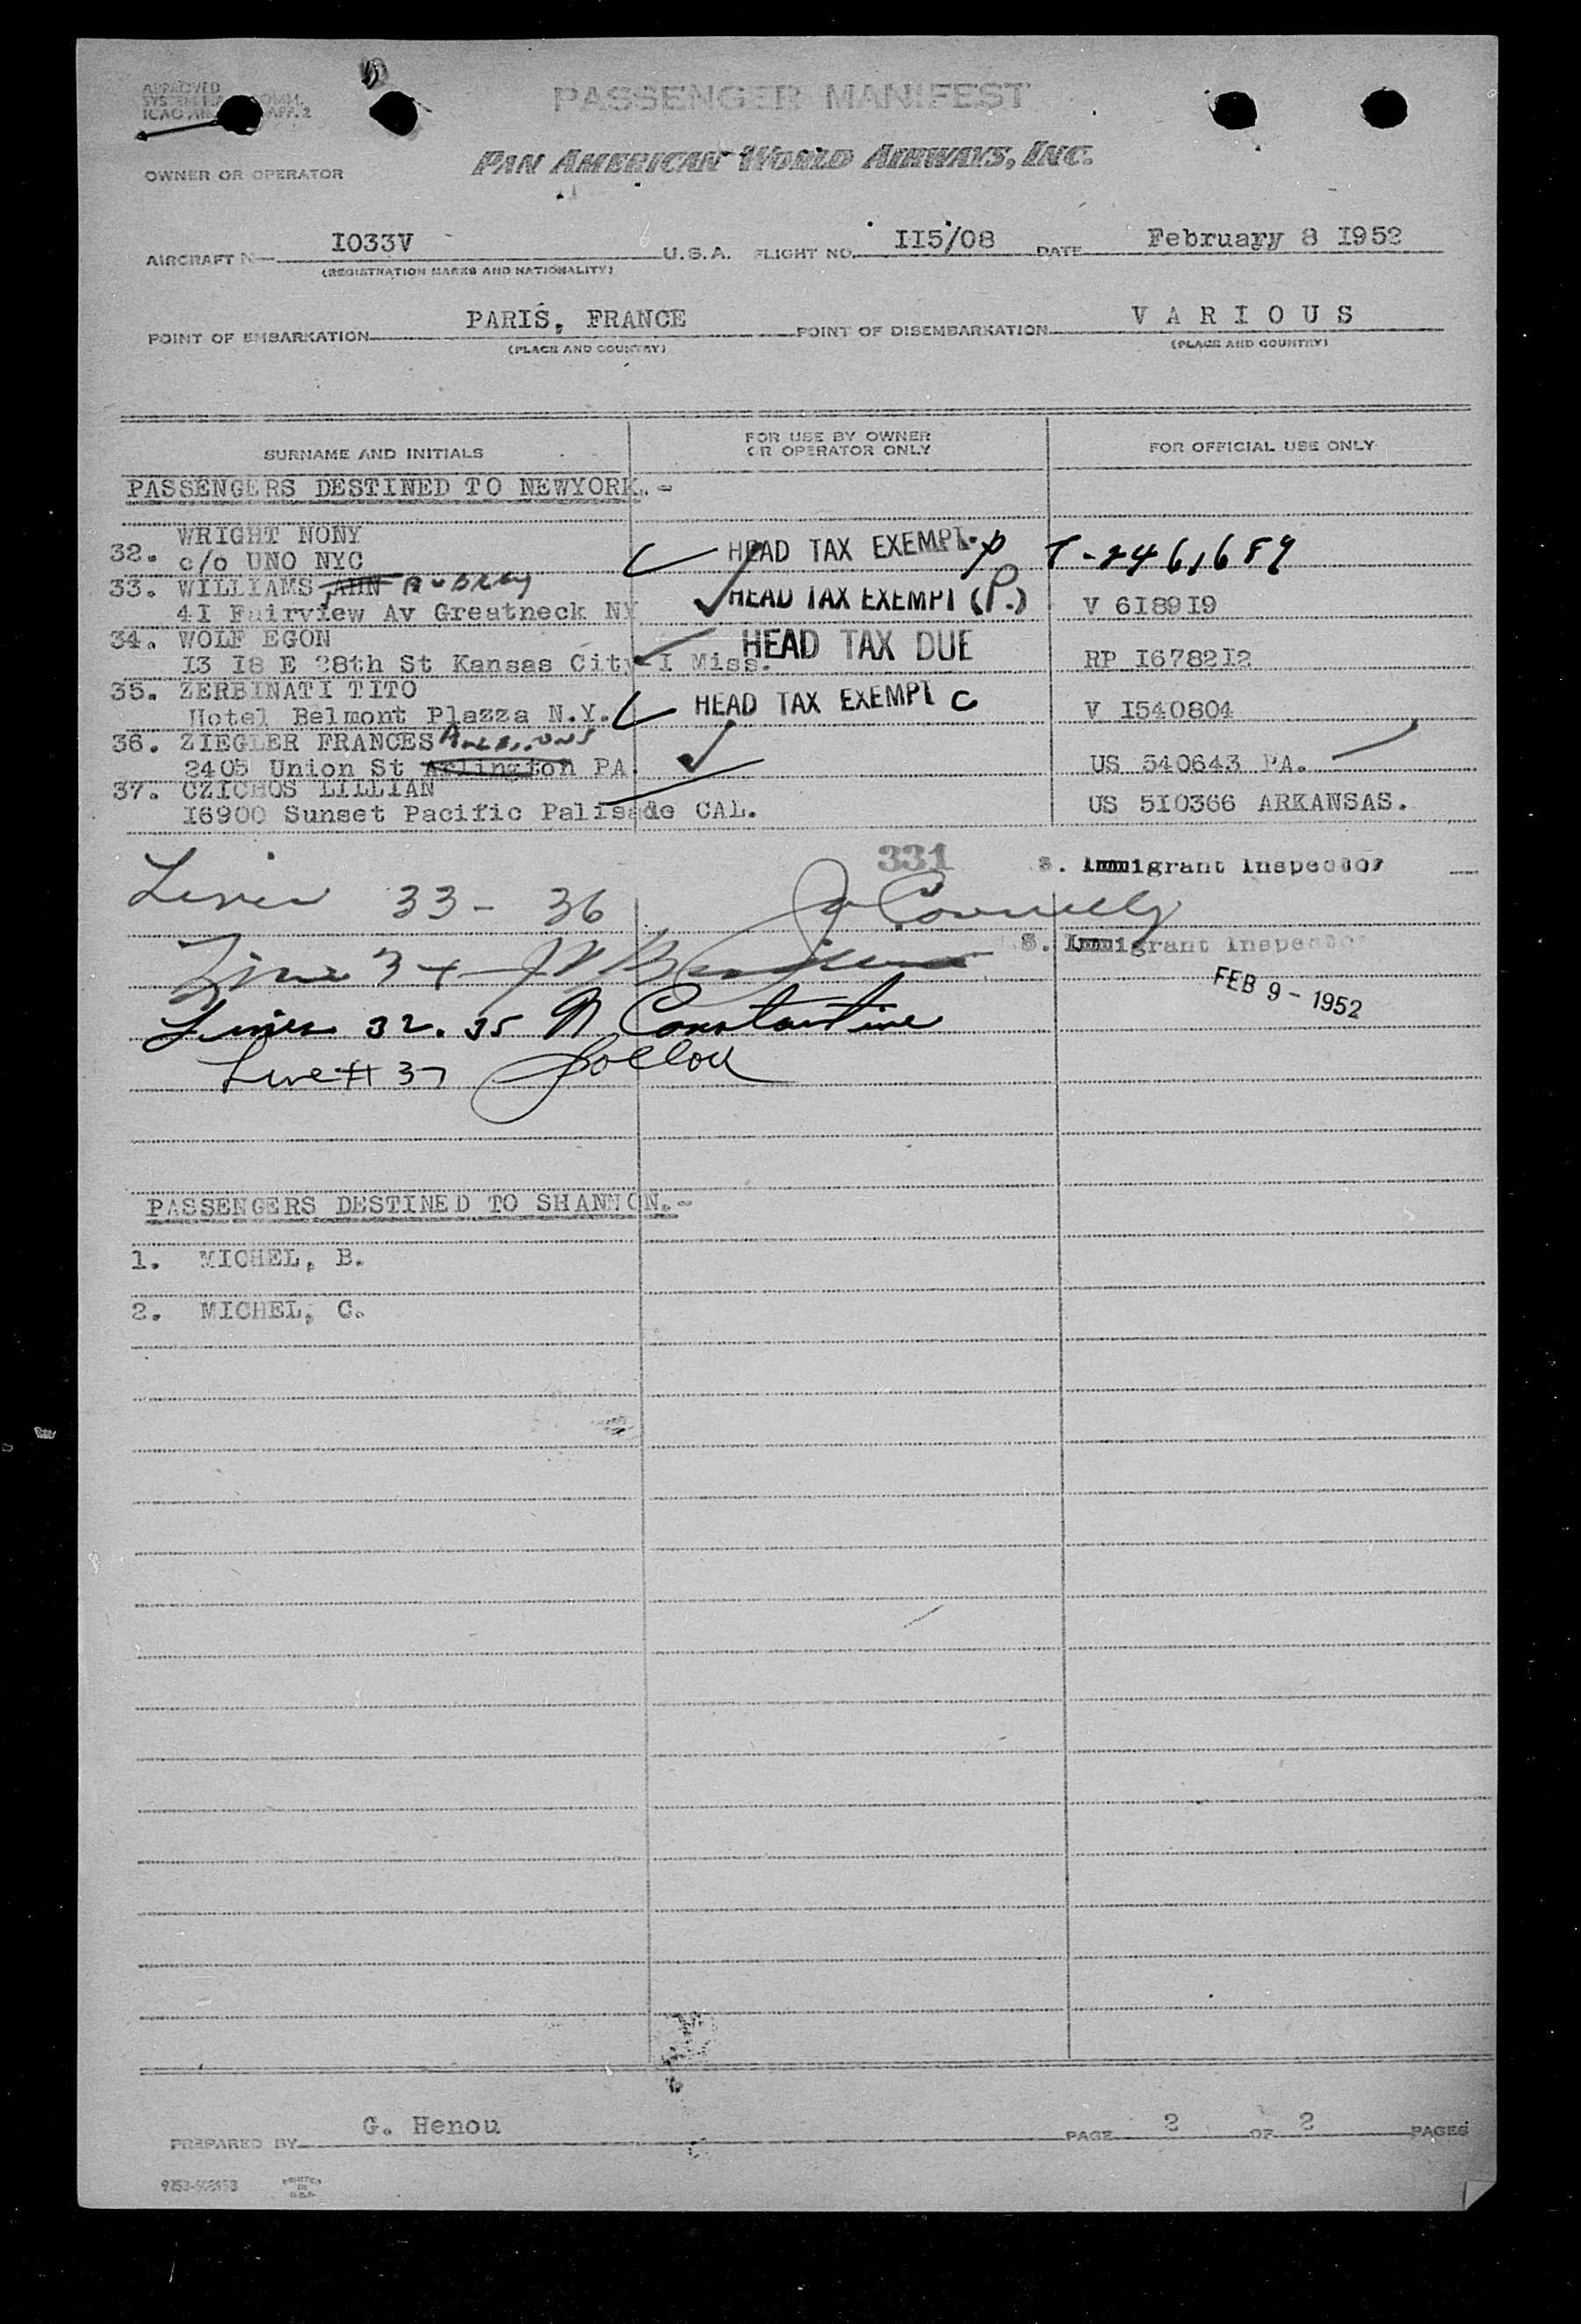 APPROVED
ICAO AN APP. 2
PASSENGER MANIFEST
PAN AMERICAN WORLD AIRWAYS, INC.
OWNER OR OPERATOR
AIRCRAFT N I033V U.S.A. FLIGHT NO. II5/08 DATE February 8 I952
(REGISTRATION MARKS AND NATIONALITY)
POINT OF EMBARKATION PARIS, FRANCE POINT OF DISEMBARKATION V A R I O U S
(PLACE AND COUNTRY) (PLACE AND COUNTRY)
SURNAME AND INITIALS FOR USE BY OWNER OR OPERATOR ONLY FOR OFFICIAL USE ONLY
PASSENGERS DESTINED TO NEWYORK.-
32. WRIGHT NONY
c/o UNO NYC HEAD TAX EXEMPT. P T-2461689
33. WILLIAMS AUBREY
4I Fairview Av Greatneck NY HEAD TAX EXEMPT (P.) V 6I89I9
34. WOLF EGON HEAD TAX DUE
I3 I8 E 28th St Kansas City I Miss. RP I6782I2
35. ZERBINATI TITO
Hotel Belmont Plazza N.Y. HEAD TAX EXEMPT C V I540804
36. ZIEGLER FRANCES
2405 Union St Arlington PA. US 540643 PA.
37. CZICHOS LILLIAN
I6900 Sunset Pacific Palisade CAL. US 5I0366 ARKANSAS.
331 S. Immigrant Inspector
Lines 33 - 36 Connelly
S. Immigrant Inspector
Line 34
FEB 9 - 1952
Lines 32. 35 N Constantine
Line # 37
PASSENGERS DESTINED TO SHANNON.-
1. MICHEL, B.
2. MICHEL, C.
PREPARED BY G. Henou PAGE 2 OF 2 PAGES